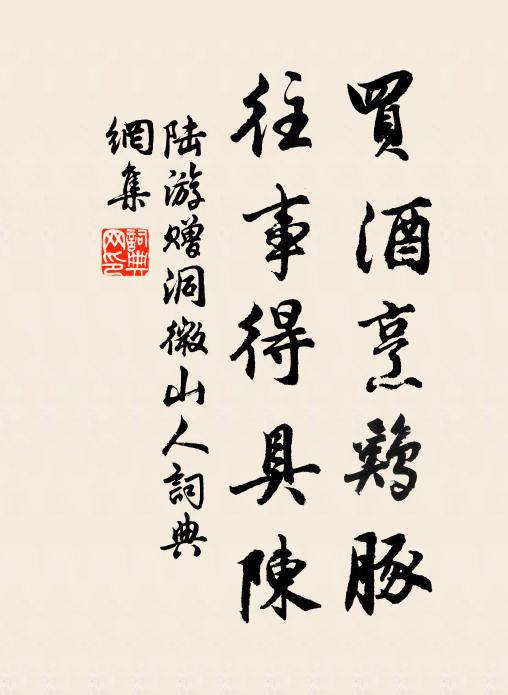 買酒烹鷄豚
往事得具陳
陆游赠洞微山人詞典
網集
詞典網印